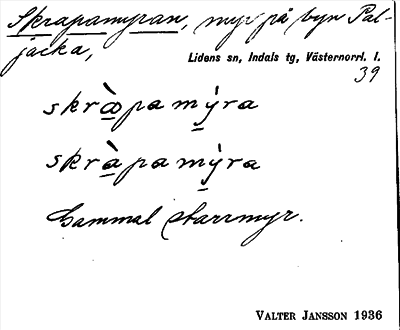 Skrapamyran, myr på byn Pal-
jacka,
Lidens sn, Indals tg, Västernorrl. l.
39
skræ̀pamýra
skràpamýra
Gammal starrmyr.
VALTER JANSSON 1936